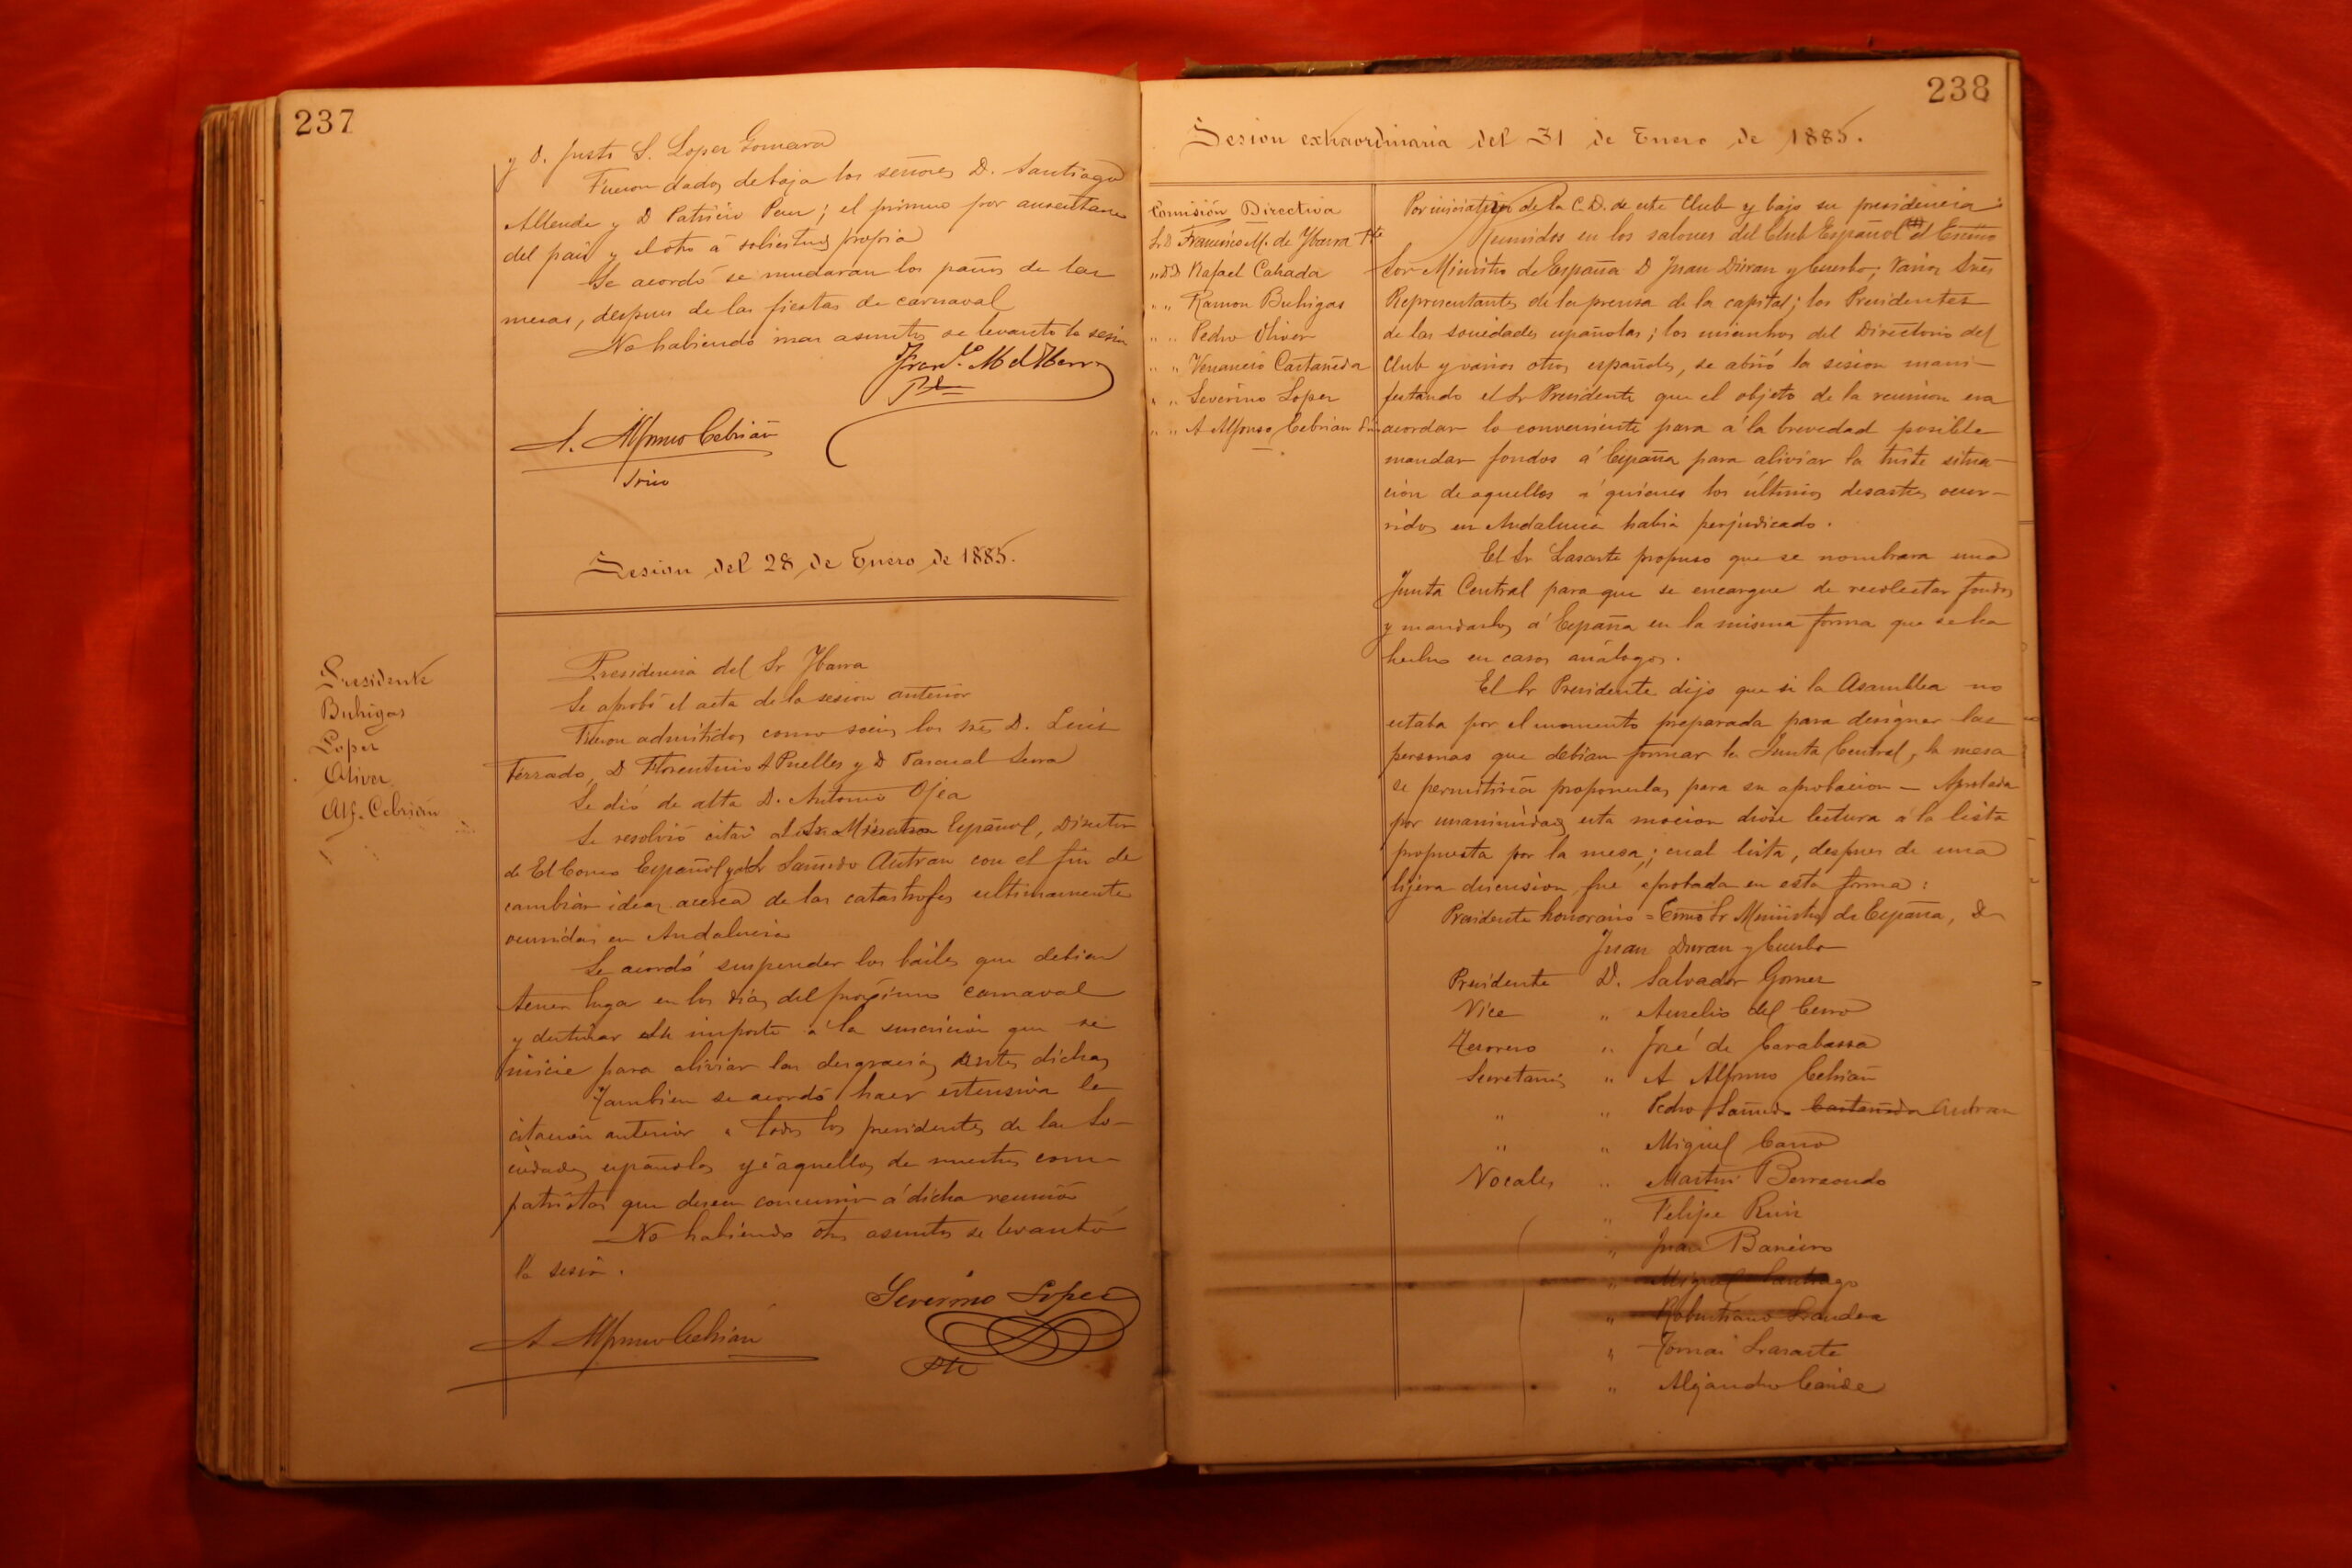 237
y D. Justo S. Lopez Gomara
Fueron dados de baja los señores D. Santiago
Allende y D Patricio Peru; el primero por ausentarse
del pais y el otro á solicitud propia
Se acordó se mudaran los paños de las
mesas, despues de las fiestas de carnaval
No habiendo mas asuntos se levantó la sesion
Franco. M de Ybarra
Pte
A. Alfonso Cebrián
Srio
Sesion del 28 de Enero de 1885.
Presidente
Buhigas
Lopez
Oliver
Alf. Cebrián
Presidencia del Sr Ybarra
Se aprobó el acta de la sesion anterior
Fueron admitidos como socios los sres D. Luis
Terrado, D Florentino A Puelles y D Pascual Serra
Se dió de alta D. Antonio Ojea
Se resolvió citar al Sr Ministro Español, Director
de El Correo Español y al Sr Sañudo Autran con el fin de
cambiar ideas acerca de las catastrofes ultimamente
ocurridas en Andalucia
Se acordó suspender los bailes que debian
tener lugar en los dias del proximo carnaval
y destinar su importe á la suscricion que se
inicie para aliviar las desgracias antes dichas
Tambien se acordó hacer estensiva la
citacion anterior á todos los presidentes de las So-
ciedades españolas y á aquellos de nuestros com-
patriotas que deseen concurrir á dicha reunion
No habiendo otros asuntos se levantó
la sesion.
Severino Lopez
Pte
A. Alfonso Cebrián
238
Sesion extraordinaria del 31 de Enero de 1885.
Comisión Directiva
Sr D Francisco M. de Ybarra Pte
" D Rafael Calzada
" " Ramon Buhigas
" " Pedro Oliver
" " Venancio Castañeda
" " Severino Lopez
" " A Alfonso Cebrian Srio
Por iniciativa de la C.D. de este Club y bajo su presidencia:
Reunidos en los salones del Club Español el Exmo
Sor Ministro de España D Juan Duran y Cuerbo; varios Sres
Representantes de la prensa de la capital; los Presidentes
de las sociedades españolas; los miembros del Directorio del
Club y varios otros españoles, se abrió la sesion mani-
festando el Sr Presidente que el objeto de la reunion era
acordar lo conveniente para á la brevedad posible
mandar fondos á España para aliviar la triste situa-
cion de aquellos á quienes los últimos desastres ocur-
ridos en Andalucia habia perjudicado.
El Sr Lasarte propuso que se nombrara una
Junta Central para que se encargue de recolectar fondos
y mandarlos á España en la misma forma que se ha
hecho en casos análogos.
El Sr Presidente dijo que si la Asamblea no
estaba por el momento preparada para designar las
personas que debian formar la Junta Central, la mesa
se permitiria proponerlas para su aprobacion — Aprobada
por unanimidad esta mocion dióse lectura á la lista
propuesta por la mesa; cual lista, despues de una
lijera discusion fué aprobada en esta forma:
Presidente honorario = Exmo Sr Ministro de España, D
Juan Duran y Cuerbo
Presidente D. Salvador Gomez
Vice " Aurelio del Cerro
Tesorero " José de Carabassa
Secretarios " A Alfonso Cebrian
" " Pedro Sañudo Castañeda Autran
" " Miguel Cano
Vocales " Martin Berraondo
" Felipe Ruiz
" Juan Barreiro
" Miguel Santiago
" Robustiano Grandea
" Tomas Lasarte
" Alejandro Caride